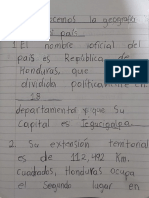 conocemos la geografía
país
1. El nombre oficial del
país es República de
Honduras, que
dividida políticamente en
18
departamentos y que. Su
Capital es Tegucigalpa
2. Su extensión territorial
es de 112,492 Km.
cuadrados, Honduras ocupa
el Segundo lugar en